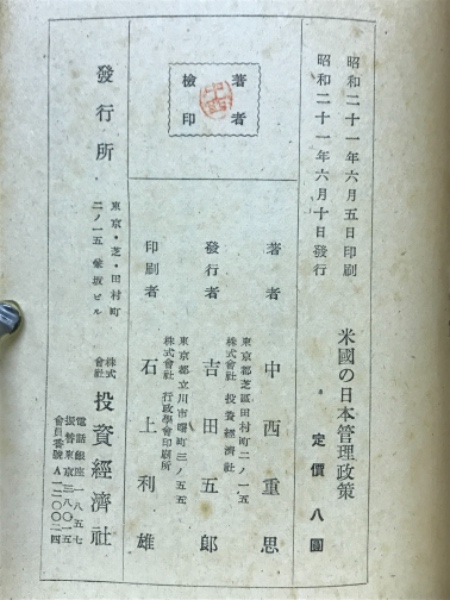 昭和二十一年六月五日印刷
昭和二十一年六月十日發行
米國の日本管理政策
定價八圓
著者
檢印
中西
著者 中西重思
東京都芝區田村町二ノ一五
株式會社 投資經濟社
發行者 吉田五郎
東京都立川市曙町三ノ五五
株式會社 行政學會印刷所
印刷者 石上利雄
發行所
東京・芝・田村町
二ノ一五 ビル
株式會社 投資經濟社
電話銀座一八五七
振替東京三八〇一五
會員番號A一二〇〇二四